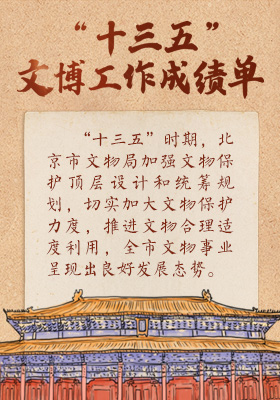 “十三五”
文博工作成绩单
“十三五”时期，北
京市文物局加强文物保
护顶层设计和统筹规
划，切实加大文物保护
力度，推进文物合理适
度利用，全市文物事业
呈现出良好发展态势。